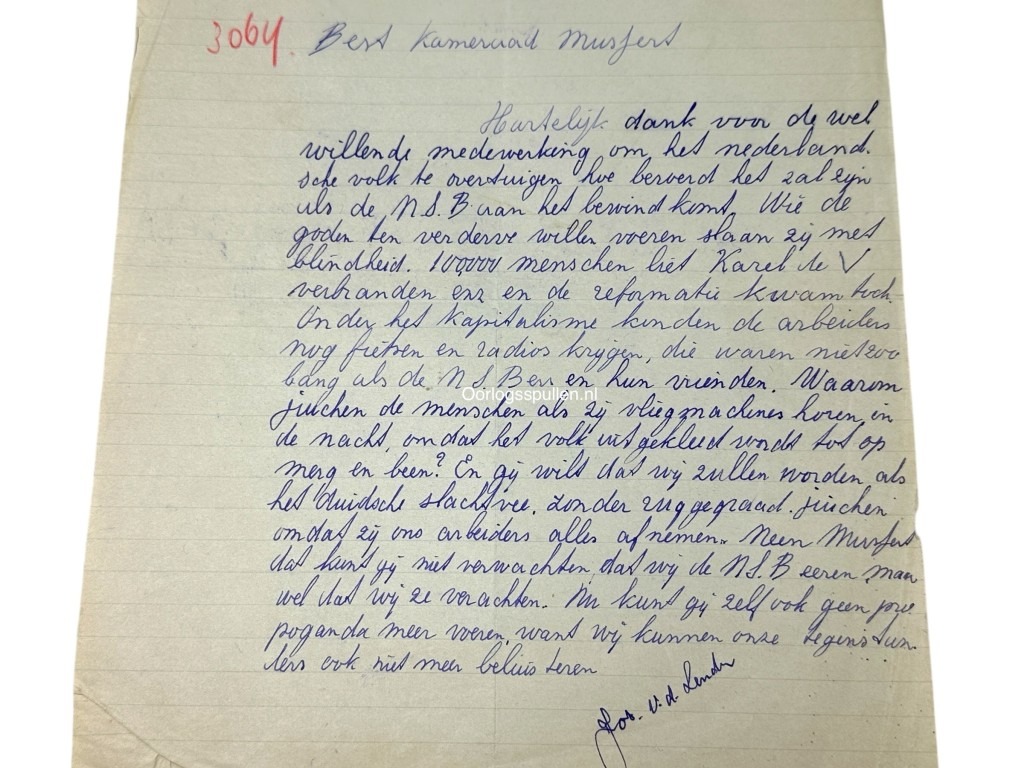 3064. Best Kameraad Mussert
Hartelijk dank voor de wel
willende medewerking om het nederland.
sche volk te overtuigen hoe beroerd het zal zijn
als de N.S.B. aan het bewind komt. Wie de
goden ten verderve willen voeren slaan zij met
blindheid. 100,000 menschen liet Karel de V
verbranden enz en de reformatie kwam toch
Onder het kapitalisme konden de arbeiders
nog fietsen en radios krijgen, die waren niet zoo
bang als de N.S.Bers en hun vrienden. Waarom
Oorlogsspullen.nl
juichen de menschen als zij vliegmachines horen in
de nacht, omdat het volk uitgekleed wordt tot op
merg en been? En gij wilt dat wij zullen worden als
het duidsche slachtvee. zonder ruggegraad. juichen
omdat zij ons arbeiders alles afnemen. Neen Mussert
dat kunt gij niet verwachten, dat wij de N.S.B eeren maar
wel dat wij ze verachten. Nu kunt gij zelf ook geen pro
poganda meer voeren, want wij kunnen onze tegenstan
ders ook niet meer beluisteren
Jos. v.d.